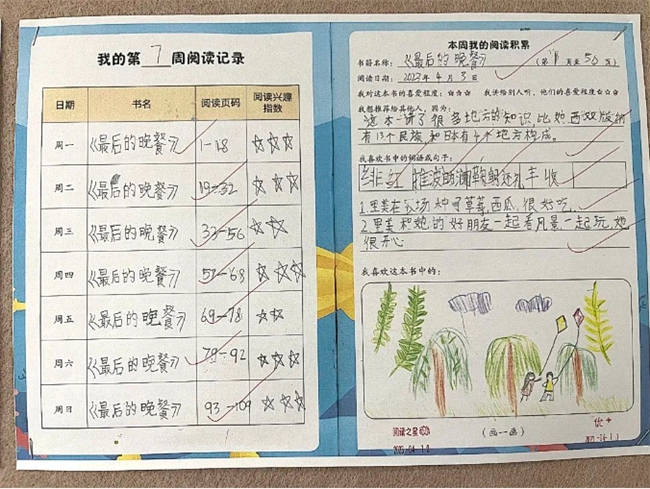 我的第 7 周阅读记录
日期 书名 阅读页码 阅读兴趣指数
周一 《最后的晚餐》 1-18 ☆☆☆
周二 《最后的晚餐》 19-32 ☆☆☆
周三 《最后的晚餐》 33-56 ☆☆
周四 《最后的晚餐》 57-68 ☆☆☆
周五 《最后的晚餐》 69-78 ☆☆
周六 《最后的晚餐》 79-92 ☆☆☆
周日 《最后的晚餐》 93-109 ☆☆☆
本周我的阅读积累
书籍名称：《最后的晚餐》（第 1 页至 50 页）
阅读日期：2023年4月3日
我对这本书的喜爱程度：☆☆☆ 我讲给别人听，他们的喜爱程度☆☆☆
我想推荐给其他人，因为：
这本讲了很多地方的知识比如西双版纳
有13个民族和日本有4个地方构成。
我喜欢书中的词语或句子：
绯红 推波助澜 鞠躬还礼 丰收
1.里美在农场种草莓,西瓜,很好吃。
2.里美和她的好朋友一起看风景一起玩,她
很开心
我喜欢这本书中的：
（画一画）
阅读之星
优+